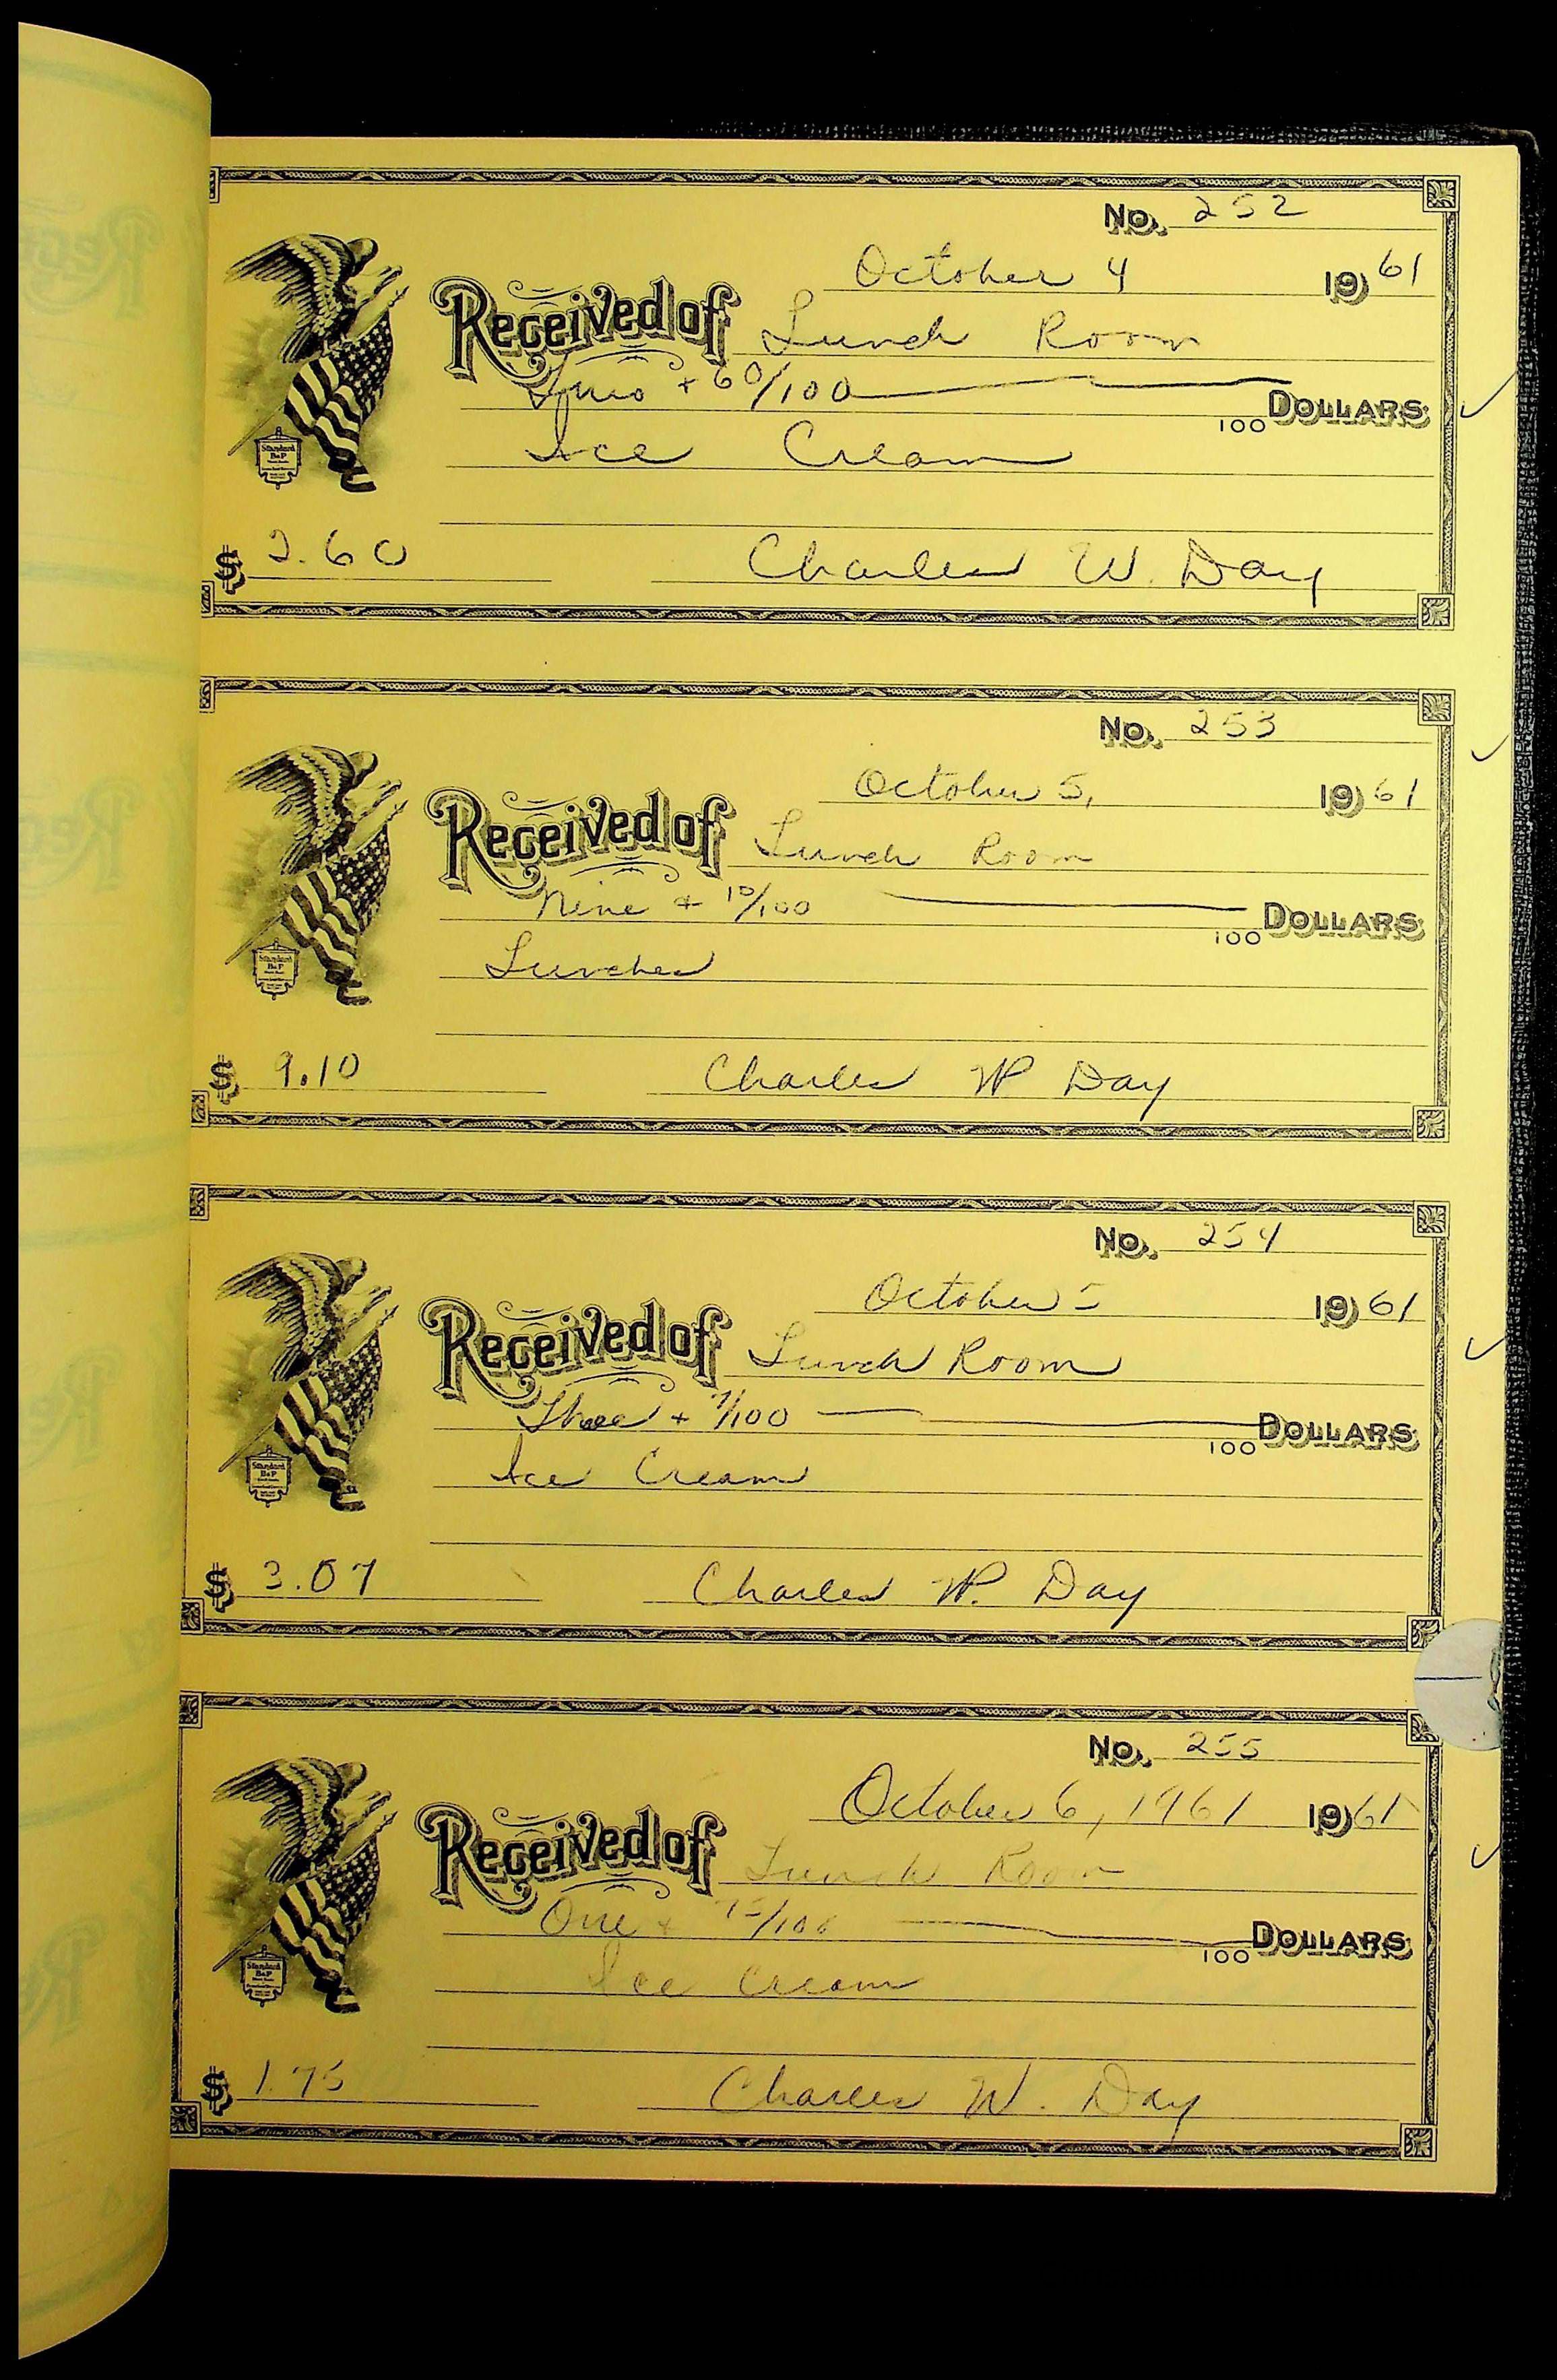 No. 252
October 4 1961
Received of Lunch Room
Two + 60/100 100 DOLLARS
Ice Cream
Standard
B&P
$ 2.60 Charles W. Day
No. 253
October 5, 1961
Received of Lunch Room
Nine + 10/100 100 DOLLARS
Lunches
Standard
B&P
$ 9.10 Charles W Day
No. 254
October 5 1961
Received of Lunch Room
Three + 7/100 100 DOLLARS
Ice Cream
Standard
B&P
$ 3.07 Charles W. Day
No. 255
October 6, 1961 1961
Received of Lunch Room
One + 75/100 100 DOLLARS
Ice Cream
Standard
B&P
$ 1.75 Charles W. Day